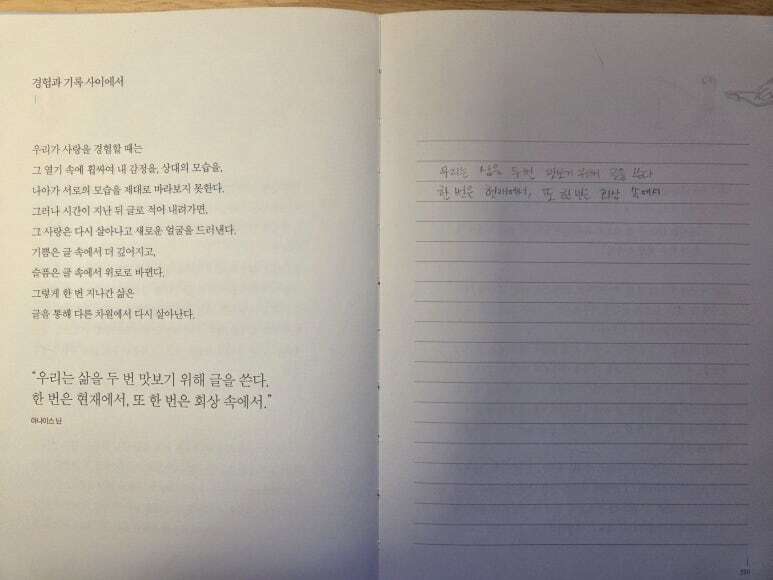 경험과 기록 사이에서
우리가 사랑을 경험할 때는
그 열기 속에 휩싸여 내 감정을, 상대의 모습을,
나아가 서로의 모습을 제대로 바라보지 못한다.
그러나 시간이 지난 뒤 글로 적어 내려가면,
그 사랑은 다시 살아나고 새로운 얼굴을 드러낸다.
기쁨은 글 속에서 더 깊어지고,
슬픔은 글 속에서 위로로 바뀐다.
그렇게 한 번 지나간 삶은
글을 통해 다른 차원에서 다시 살아난다.
“우리는 삶을 두 번 맛보기 위해 글을 쓴다.
한 번은 현재에서, 또 한 번은 회상 속에서.”
아나이스 닌
우리는 삶을 두 번 맛보기 위해 글을 쓴다
한 번은 현재에서, 또 한 번은 회상 속에서